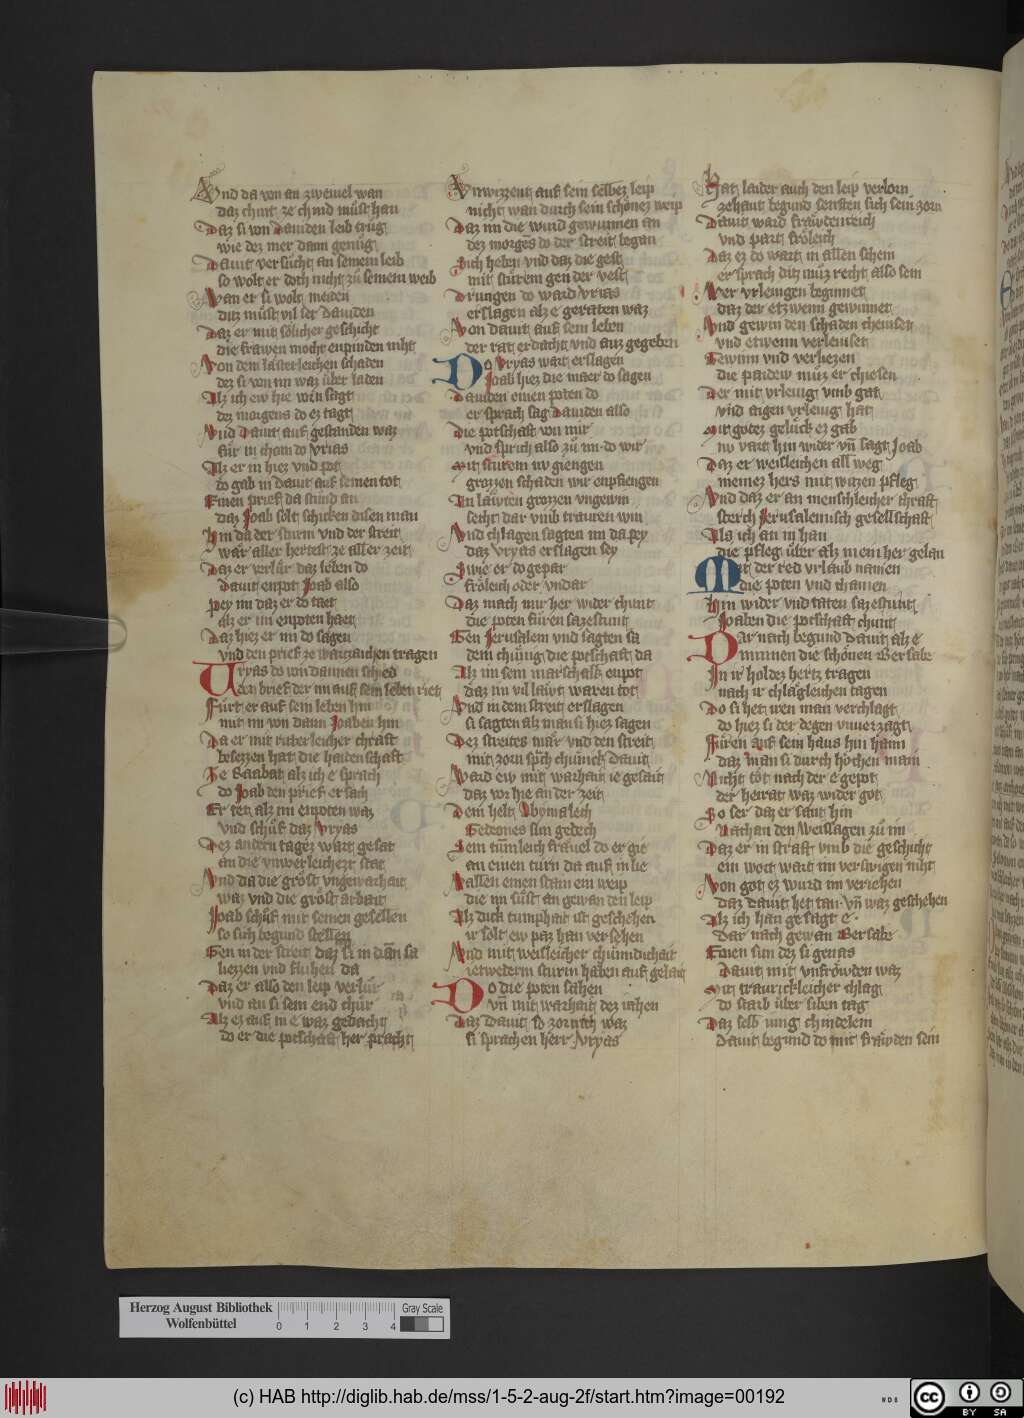 Vnd da von an zweiuel wan
daz chint ze chind müst han
Daz si von Dauiden leib trüg
wie dez mer dann genüg
Dauit versücht an seinem leib
so wolt er doch nicht zü seinem weib
Wan er si wolt meiden
ditz müst vil ser Dauiden
Daz er mit sölicher geschicht
die frawen mocht enpinden niht
Von dem lasterleichen schaden
dez si von im waz über laden
Alz ich ew hie won sagt
dez morgens do ez tagt
Vnd Dauit auf gestanden waz
für in chom do Vrias
Alz er in hiez vnd pot
do gab in dauit auf seinen tot
Einen prief da stund an
daz Joab solt schicken disen man
Hin da der sturm vnd der streit
wär aller hertest ze aller zeit
Daz er verlür daz leben do
Dauit enpot Joab also
pey im daz er do taet
alz er im enpoten haet
Daz hiez er im do sagen
vnd den prief ze wartzaichen tragen
Vryas do von dannen schied
den brief der im auf sein leben riet
Fürt er auf sein leben hin
mit im von dann Joaben hin
Da er mit ritterleicher chraft
besezzen hat die haidenschaft
Ze Raabat alz ich e sprach
do Joab den prief ersach
Er tet alz im enpoten waz
vnd schüf daz Vryas
Dez andern tagez wart gesat
an die vnwerleichezt stat
Vnd da die gröst vngewarhait
waz vnd die gröst arbait
Joab schüf mit seinen gesellen
so sich begund stellen
Gen in der streit daz si in dan sa
liezzen vnd fluhen da
Daz er also den leip verlür
vnd an si sein end chür
Alz ez auf in e waz gedacht
do er die potschaft her pracht
Vnwizzent auf sein selbez leip
nicht wan durch sein schönez weip
Daz im die wind gewunnen an
dez morgens do der streit began
Sich heben vnd daz die gest
mit sturem gen der vest
Drungen do ward Vrias
erslagen alz e geraten waz
Von dauit auf sein leben
der rat erdacht vnd auz gegeben
Do Vryas wart erslagen
Joab hiez die maer do sagen
Dauiden einen poten do
er sprach sag Dauiden also
Die potschaft von mir
vnd sprich also zü im do wir
Mit sturem nv giengen
grozzen schaden wir enpfiengen
In läwten grozzen vngewin
secht dar vmb trauren wir
Vnd chlagen sagten im da pey
daz Vryas erslagen sey
Swie er do gepar
frölich oder vndar
Daz mach mir her wider chunt
die poten füren sazestunt
Gen Jerusalem vnd sagten sa
dem chüng die potschaft da
Alz im sein marschalk enpot
daz im vil läwt waren tot
Vnd in dem streit erslagen
si sagten alz man si hiez sagen
Dez streites mär vnd den streit
mit zorn sprch chünick Dauit
Ward ew mit warhait ie gesait
daz vor hie an der zeit
Dem helt Abymalech
Gedeones sun gedech
Sein tumleich fräuel do er gie
an einen turn da auf in lie
Vallen einen stain ein weip
die im sust an gewan den leip
Alz dick tumphait ist geschehen
ir solt ew paz han versehen
Vnd mit weisleicher chündichait
ietwederm sturm haben auf gelait
Do die poten sahen
vn mit warhait dez iahen
Daz Dauit so zornich waz
si sprachen herr Vryas
Hat laider auch den leip verlorn
zehant begund senften sich sein zorn
Dauit ward fräwdenreich
vnd part frölich
Daz ez do wart in allen schein
er sprach ditz müz recht also sein
Wer vrleugen beginnet
daz der etzwenn gewinnet
Vnd gewin den schaden cheuset
vnd etwenn verleuset
Gewinn vnd verliezen
die paidew müz er chiesen
Der mit vrleug vmb gat
vnd aigen vrleug hat
Mit gotez gelück ez gab
nv vart hin wider vn sagt Joab
Daz er weisleichen all weg
meinez hers mit witzen pfleg
Vnd daz er an menschleicher chraft
sterch Jerusalemisch gesellschaft
Als ich an in han
die pfleg über alz mein her gelan
Mit der red vrlaub namen
die poten vnd chamen
Hin wider vnd taten sazestunt
Joaben die potschaft chunt
Dar nach begund Dauit alz e
minnen die schönen Bersabe
In ir holdez hertz tragen
nach ir chlägleichen tagen
Do si het iren man verchlagt
do hiez si der degen vnuerzagt
Füren auf sein haus hin haim
daz man si durch hochen maim
Nicht töt nach der e gepot
der heirat waz wider got
So ser daz er sant hin
Nathan den Weissagen zü im
Daz er in straft vmb die geschicht
ein wort wart im verswigen niht
Von got ez wurd im veriehen
daz Dauit het tan vn waz geschehen
Alz ich han gesagt e
Dar nach gewan Bersabe
Einen sun dez si genas
Dauit mit vnfröwden waz
Mit traurickleicher chlag
do starb über siben tag
Daz selb iung chindelein
Dauit begund do mit fräwden sein
Herzog August Bibliothek
Wolfenbüttel
0 1 2 3 4
Gray Scale
(c) HAB http://diglib.hab.de/mss/1-5-2-aug-2f/start.htm?image=00192
cc BY SA